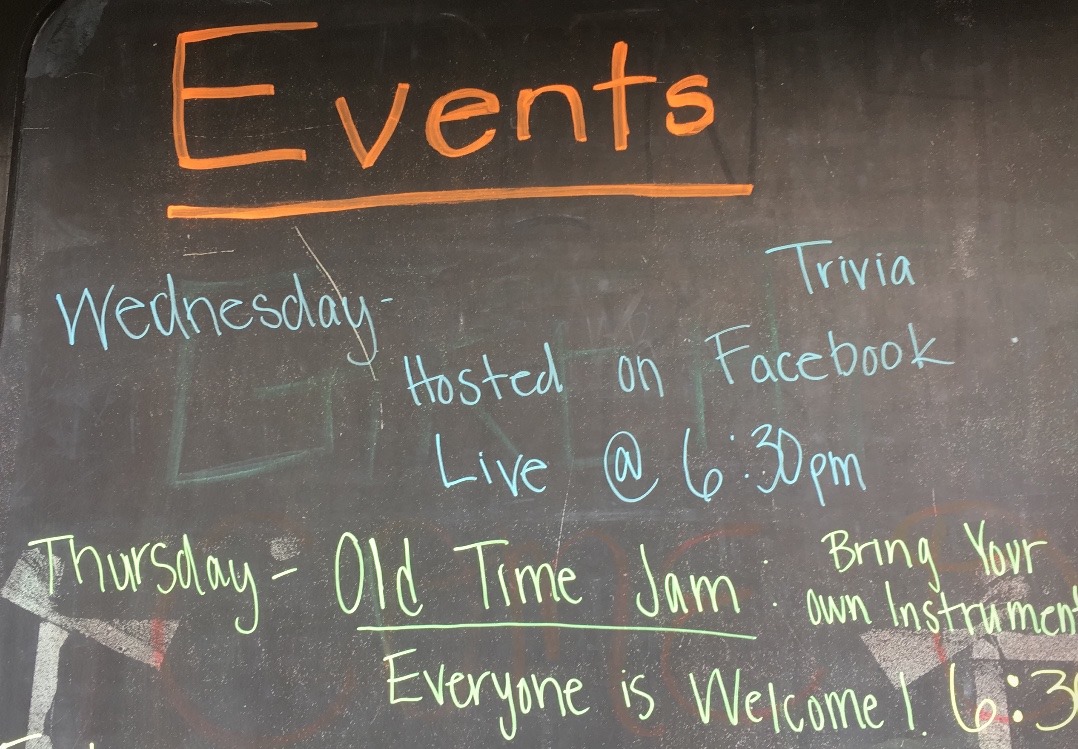 Events
Wednesday- Trivia
Hosted on Facebook
Live @ 6:30pm
Thursday - Old Time Jam : Bring Your
own Instrument
Everyone is Welcome! 6:3